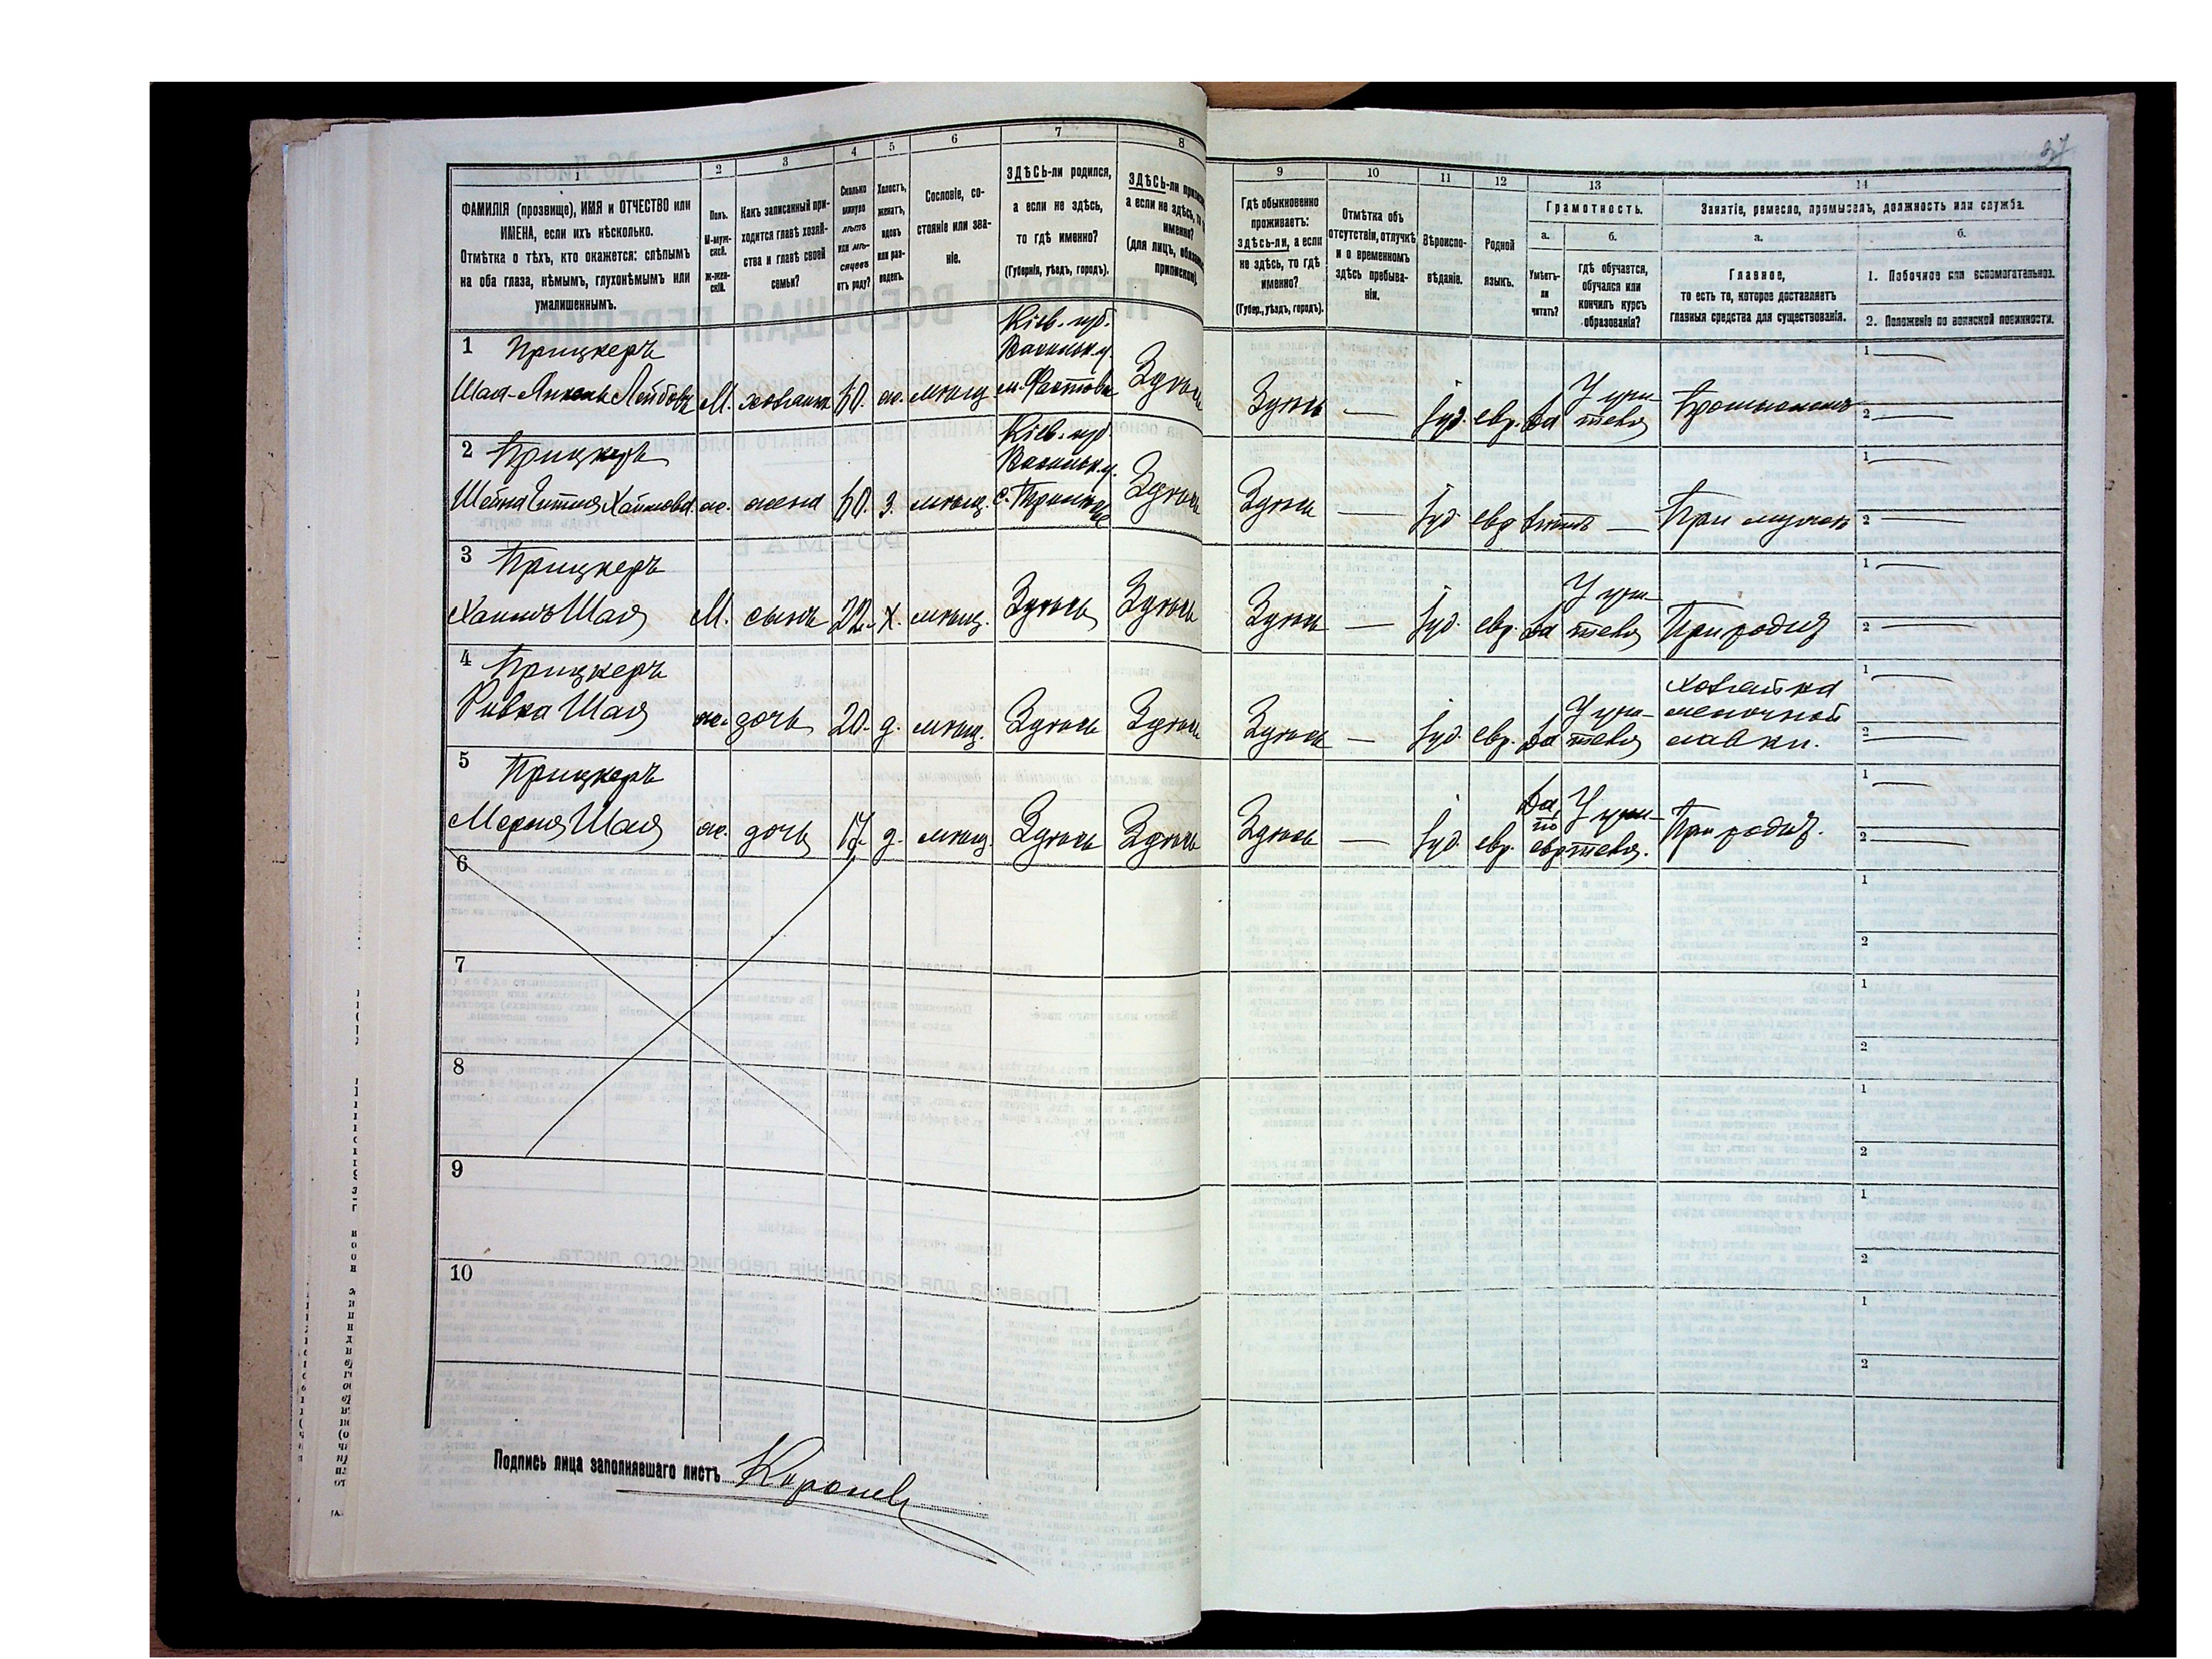 37
1
ФАМИЛІЯ (прозвище), ИМЯ и ОТЧЕСТВО или
ИМЕНА, если ихъ нѣсколько.
Отмѣтка о тѣхъ, кто окажется: слѣпымъ
на оба глаза, нѣмымъ, глухонѣмымъ или
умалишеннымъ.
2
Полъ.
М-муж-
ской.
Ж-жен-
скій.
3
Какъ записанный при-
ходится главѣ хозяй-
ства и главѣ своей
семьи?
4
Сколько
минуло
лѣтъ
или мѣ-
сяцевъ
отъ роду?
5
Холостъ,
женатъ,
вдовъ
или раз-
веденъ.
6
Сословіе, со-
стояніе или зва-
ніе.
7
ЗДѢСЬ-ли родился,
а если не здѣсь,
то гдѣ именно?
(Губернія, уѣздъ, городъ).
8
ЗДѢСЬ-ли
а если не здѣсь,
именно?
(для лицъ,
припиской)
9
Гдѣ обыкновенно
проживаетъ:
здѣсь-ли, а если
не здѣсь, то гдѣ
именно?
(Губер., уѣздъ, городъ).
10
Отмѣтка объ
отсутствіи, отлучкѣ
и о временномъ
здѣсь пребыва-
ніи.
11
Вѣроиспо-
вѣданіе.
12
Родной
языкъ.
13
Грамотность.
а.
Умѣетъ-
ли
читать?
б.
гдѣ обучается,
обучался или
кончилъ курсъ
образованія?
14
Занятіе, ремесло, промыселъ, должность или служба.
а.
Главное,
то есть то, которое доставляетъ
главныя средства для существованія.
б.
1. Побочное или вспомогательное.
2. Положеніе по воинской повинности.
1 Прицкеръ
Шая-Янкель Лейбовъ М. хозяинъ 60. ж. мѣщ.
Кіев. губ.
Васильк. у.
м. Фастовъ
Здѣсь Здѣсь — Іуд. евр. Да
У учи-
теля
1 —
2 —
2 Прицкеръ
Шейна Хаимова ж. жена 60. з. мѣщ.
Кіев. губ.
Васильк. у.
с.
Здѣсь Здѣсь — Іуд. евр. нѣтъ — При мужѣ
1 —
2 —
3 Прицкеръ
Хаимъ Шая М. сынъ 22. х. мѣщ. Здѣсь Здѣсь Здѣсь — Іуд. евр. Да
У учи-
теля
При родит.
1 —
2 —
4 Прицкеръ
Ривка Шая ж. дочь 20. д. мѣщ. Здѣсь Здѣсь Здѣсь — Іуд. евр. Да
У учи-
теля
хозяйка
мелочной
лавки.
1 —
2 —
5 Прицкеръ
Меря Шая ж. дочь 17. д. мѣщ. Здѣсь Здѣсь Здѣсь — Іуд. евр.
Да
по
евр.
У учи-
теля.
При родит.
1 —
2 —
6
1
2
7
1
2
8
1
2
9
1
2
10
1
2
Подпись лица заполнявшаго листъ